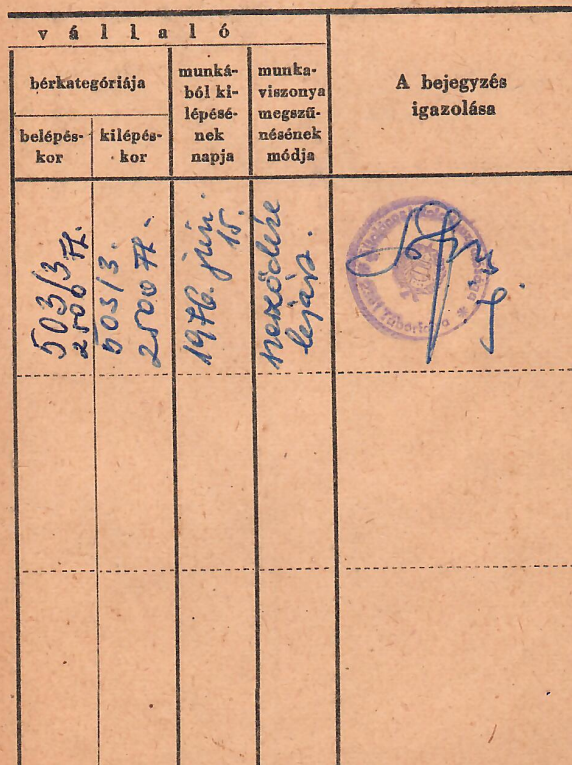 vállaló
bérkategóriája
belépés-
kor
kilépés-
kor
munká-
ból ki-
lépésé-
nek
napja
munka-
viszonya
megszű-
nésének
módja
A bejegyzés
igazolása
503/3
2500 Ft.
503/3.
2500 Ft.
1976. jún.
15.
lejárt.